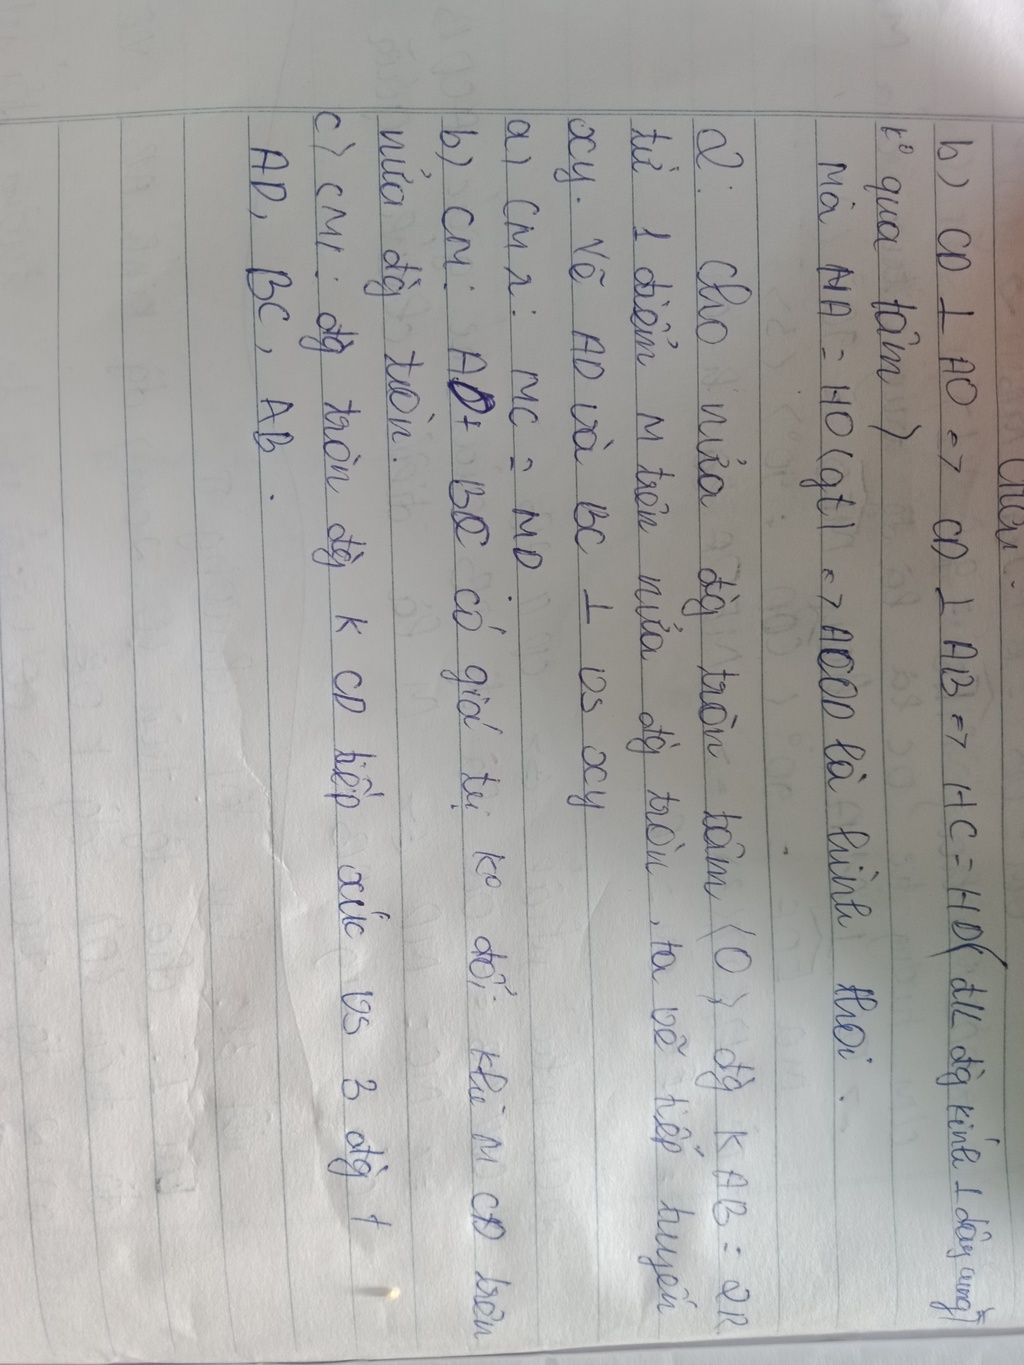 b) CD ⊥ AO => CD ⊥ AB => HC = HD ( đl đg kính ⊥ dây cung
k° qua tâm )
Mà HA = HO (gt) => ACOD là hình thoi .
2 : Cho nửa đg tròn tâm (O) đg k AB = 2R
từ 1 điểm M trên nửa đg tròn , ta vẽ tiếp tuyến
xy. Vẽ AD và BC ⊥ vs xy
a) CM r : MC = MD
b) CM : AD + BC có giá trị k° đổi khi M CĐ trên
nửa đg tròn .
c) CM : đg tròn đg k CD tiếp xúc vs 3 đg t
AD, BC, AB .